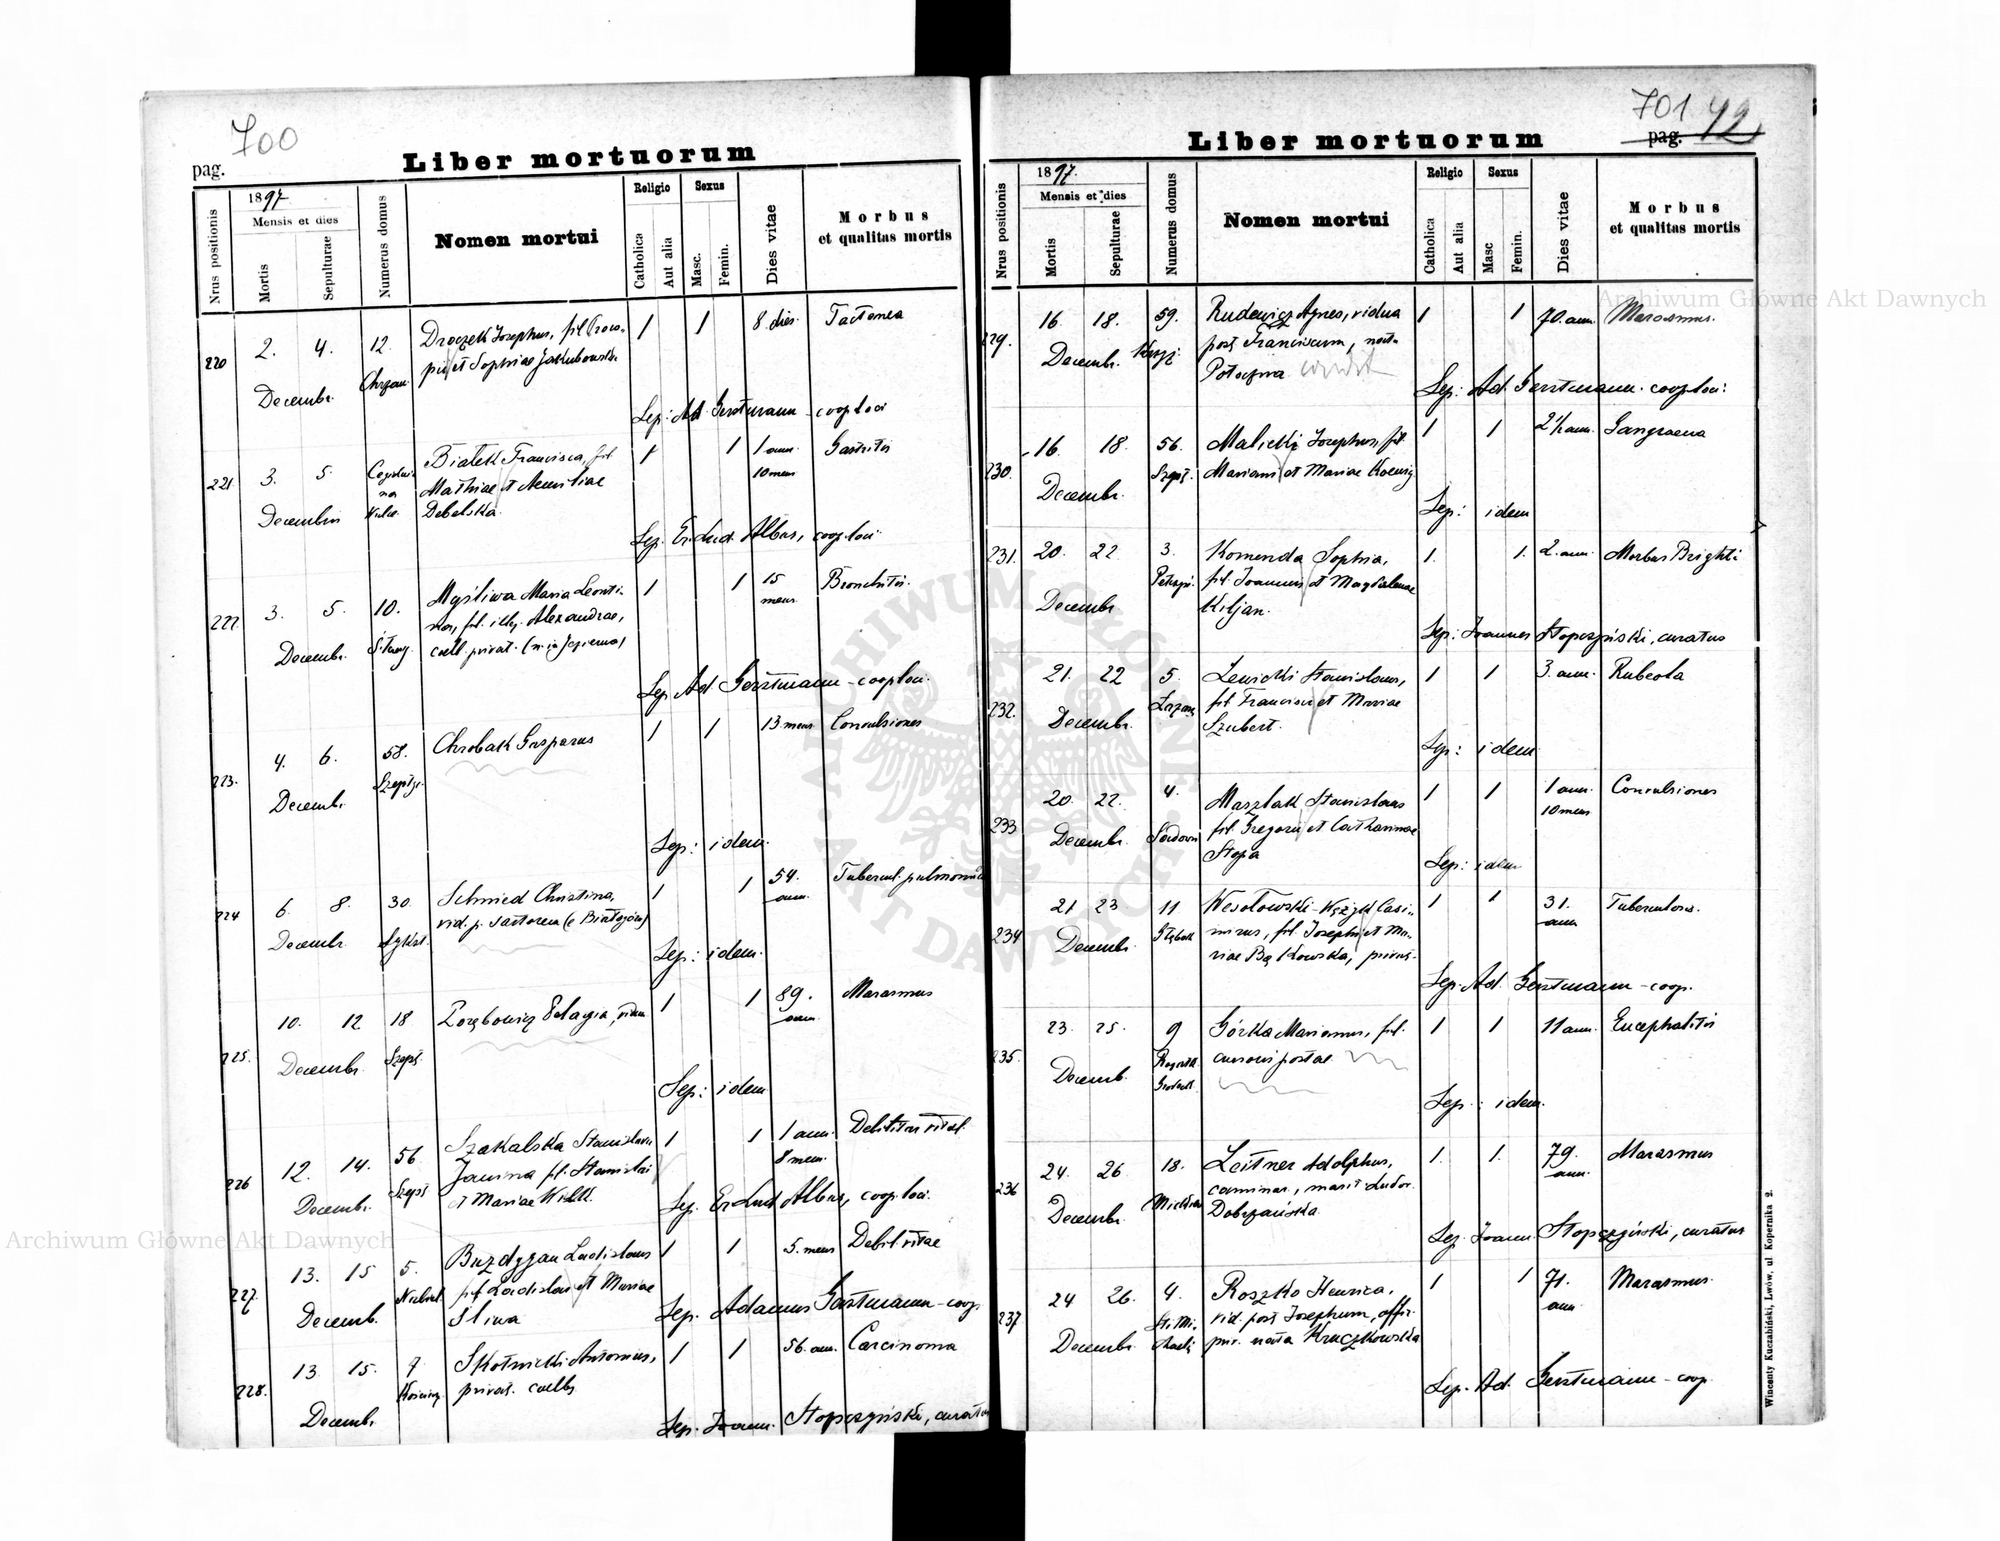 700
pag.
Liber mortuorum
Nrus positionis
1897
Mensis et dies
Mortis
Sepulturae
Numerus domus
Nomen mortui
Religio
Catholica
Aut alia
Sexus
Masc.
Femin.
Dies vitae
Morbus
et qualitas mortis
220 2. 4. 12. Droczek Josephus, fil. 1 1 8. dies
et Sophiae Jakubowska
Decembr.
Sep: Ad. Gerstmann - coop loci
221 3. 5 Białek Francisca, fil. 1 1 1 ann. Gastritis
Mathiae et 10 mens
Decembris Debelska.
Sep. Lud. Albus, coop. loci
222 3. 5. 10. Myśliwa Maria Leonti- 1 1 15 Bronchitis
na, fil. illeg. Alexandrae, mens
Decembr. coel. privat.
Sep. Ad. Gerstmann - coop loci.
223. 4. 6. 58. Chrobak Gasparus 1 1 13 mens Convulsiones
Decembr. Szeptyc.
Sep: idem
224 6. 8. 30. Schmied Christina, 1 1 54. Tubercul. pulmonum
vid. p. Sartorem ann.
Decembr. Sykst.
Sep: idem.
225. 10. 12 18 Porębowicz Pelagia, vidua 1 1 89. Marasmus
ann.
Decembr. Szept.
Sep: idem
226 12. 14. 56 Szakalska Stanislava 1 1 1 ann. Debilitas vital.
Janina fil. Stanislai 8 mens.
Decembr. Szept et Mariae
Sep. Lud. Albus, coop loci.
227. 13. 15 5. Buzdygan Ladislaus 1 1 5. mens Debil. vitae
fil. Ladislai et Mariae
Decemb. Śliwa
Sep. Adamus Gerstmann - coop.
228. 13 15. 7 Skotnicki Antonius, 1 1 56. an. Carcinoma
privat. coelebs
Decembr.
Sep. Joann. Stopczyński, curatus
701 42
pag.
Liber mortuorum
Nrus positionis
1897.
Mensis et dies
Mortis
Sepulturae
Numerus domus
Nomen mortui
Religio
Catholica
Aut alia
Sexus
Masc
Femin.
Dies vitae
Morbus
et qualitas mortis
229. 16. 18. 59. Rudewicz Agnes, vidua 1 1 70. ann. Marasmus.
Decembr. post Franciscum, nata
Potoczna
Sep: Ad. Gerstmann. coop loci:
230. 16. 18 56. Malicki Josephus, fil. 1 1 2½ ann. Gangraena
Szept. Mariani et Mariae Koenig
Decembr.
Sep: idem
231. 20. 22 3. Komenda Sophia, 1. 1. 2. ann. Morbus Brighti
fil. Joannis et Magdalenae
Decembr Kiljan.
Sep: Joannes Stopczyński, curatus
232. 21. 22 5. Lewicki Stanislaus, 1 1 3. ann. Rubeola
fil. Francisci et Mariae
Decembr. Szubert.
Sep: idem
233 20. 22. 4. Maszlak Stanislaus 1 1 1 ann. Convulsiones
fil. Gregorii et Catharinae 10 mens
Decembr. Stopa
Sep: idem
234 21 23 11 Wesołowski-Wężyk Casi- 1 1 31. Tuberculosis.
mirus, fil. Josephi et Ma- ann
Decembr. Głębok riae Bąkowska, privat.
Sep. Ad. Gerstmann - coop.
235. 23. 25. 9 Górka Marianus, fil. 1 1 11 ann. Encephalitis
cursoris postae
Decemb.
Sep.: idem.
236 24. 26 18. Leitner Adolphus, 1. 1. 79. Marasmus
ann.
Decembr. Dobrzańska
Sep. Joann. Stopczyński, curatus
237 24 26. 4. Roszko Henrica, 1 1 71. Marasmus.
vid. post Josephum, ann
Decembr. nata Kruczkowska
Sep. Ad. Gerstmann - coop.
Wincenty Kuczabiński, Lwów, ul Kopernika 2.
Archiwum Główne Akt Dawnych
Archiwum Główne Akt Dawnych
ARCHIWUM GŁÓWNE AKT DAWNYCH